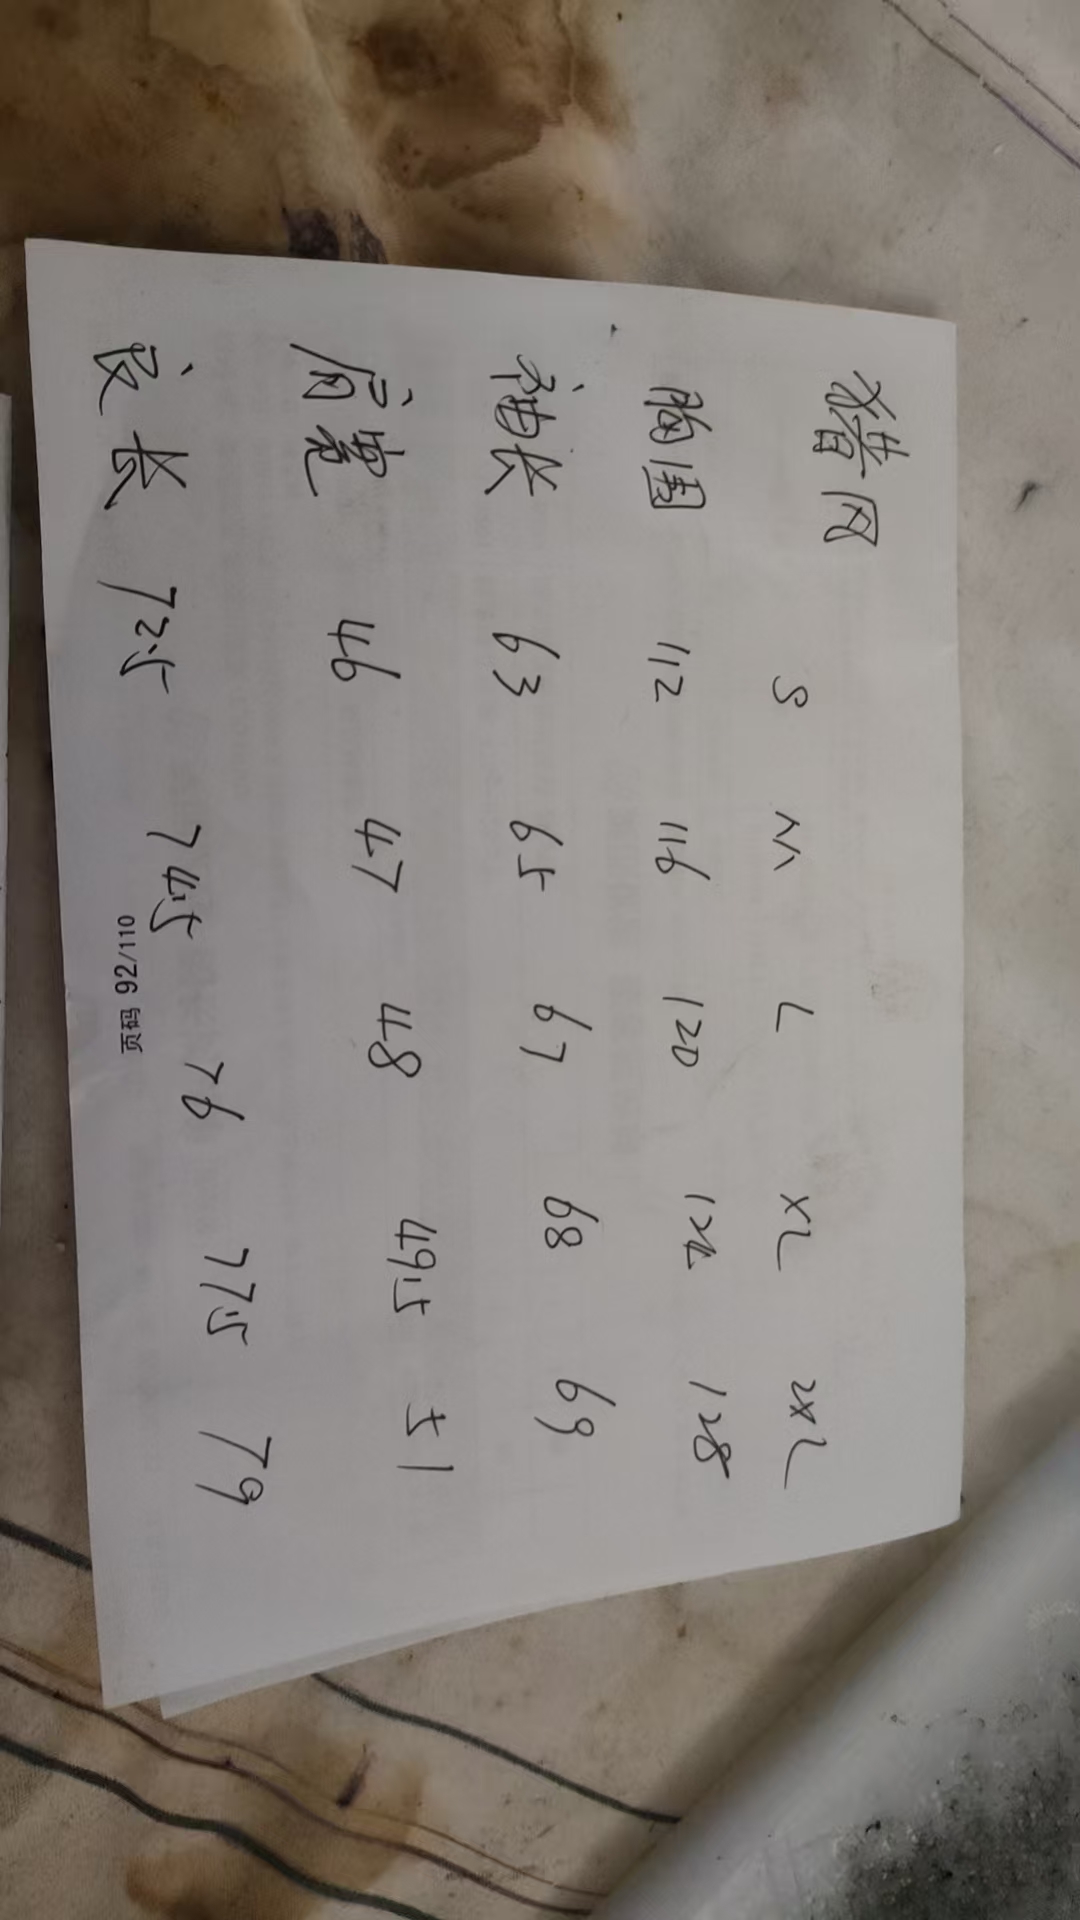 猪网
S M L XL 2XL
胸围 112 116 120 124 128
袖长 63 65 67 68 69
肩宽 46 47 48 49.5 51
衣长 72.5 74.5 76 77.5 79
页码 92/110